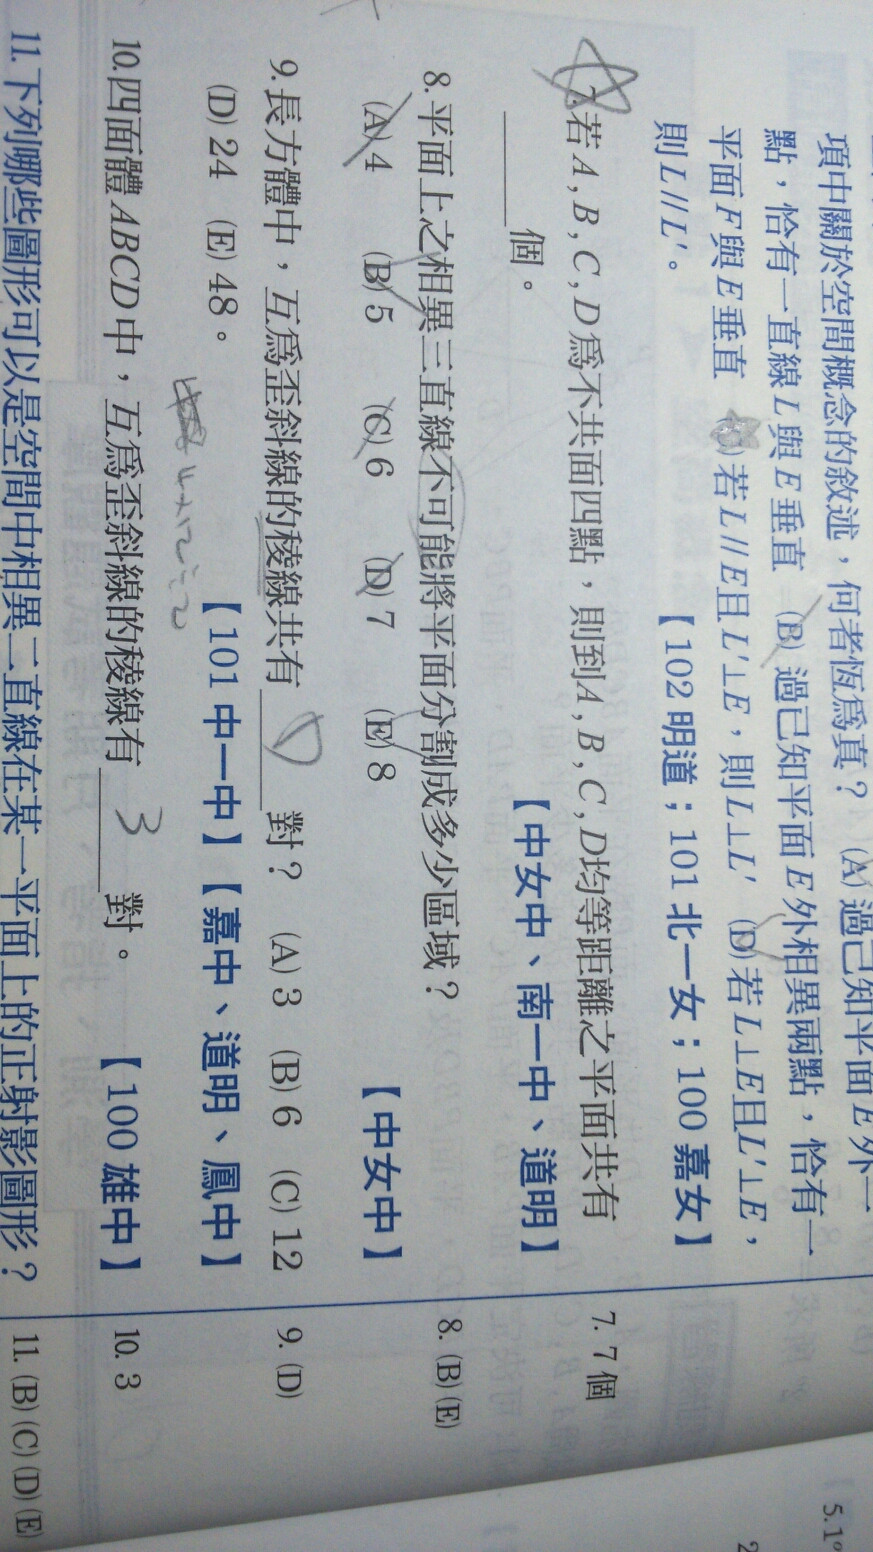 項中關於空間概念的敘述，何者恆為真？ (A) 過已知平面E外一
點，恰有一直線L與E垂直 (B) 過已知平面E外相異兩點，恰有一
平面F與E垂直 若L//E且L'⊥E，則L⊥L' (D) 若L⊥E且L'⊥E，
則L//L'。 【102 明道；101 北一女；100 嘉女】
若A,B,C,D為不共面四點，則到A,B,C,D均等距離之平面共有
____個。 【中女中、南一中、道明】
7. 7 個
8. 平面上之相異三直線不可能將平面分割成多少區域？
(A) 4 (B) 5 (C) 6 (D) 7 (E) 8 【中女中】
8. (B)(E)
9. 長方體中，互為歪斜線的稜線共有 D 對？ (A) 3 (B) 6 (C) 12
(D) 24 (E) 48。 【101 中一中】【嘉中、道明、鳳中】
9. (D)
4×12÷2
10. 四面體ABCD中，互為歪斜線的稜線有 3 對。 【100 雄中】
10. 3
11. 下列哪些圖形可以是空間中相異二直線在某一平面上的正射影圖形？
11. (B)(C)(D)(E)
5. 1°
2